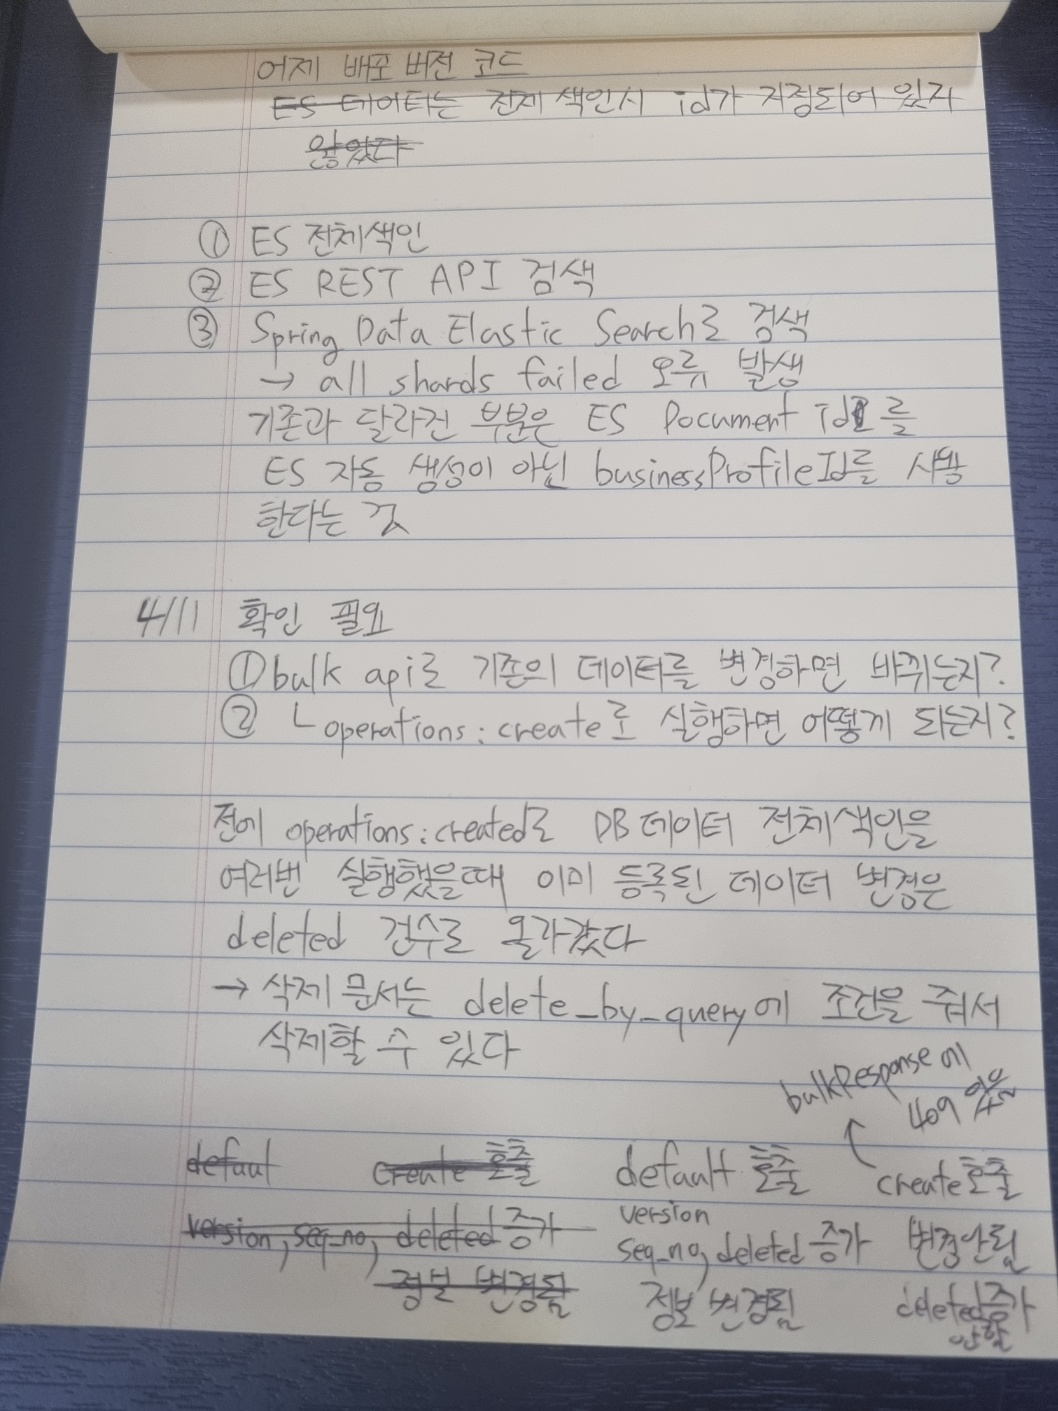 어제 배포 버전 코드
ES 데이터는 전체 색인시 id가 지정되어 있지
않았다
① ES 전체색인
② ES REST API 검색
③ Spring Data Elastic Search로 검색
→ all shards failed 오류 발생
기존과 달라진 부분은 ES Document id를
ES 자동 생성이 아닌 businessProfileId를 사용
한다는 것
4/11 확인 필요
① bulk api로 기존의 데이터를 변경하면 바뀌는지?
② ㄴoperations:create로 실행하면 어떻게 되는지?
전에 operations:created로 DB데이터 전체색인을
여러번 실행했을때 이미 등록된 데이터 변경은
deleted 건수로 올라갔다
→ 삭제 문서는 delete_by_query에 조건을 줘서
삭제할 수 있다
bulkResponse에
409 있음
defaul create 호출 default 호출 create호출
version, seq_no, deleted 증가
version
seq_no, deleted 증가 변경안됨
정보 변경됨 정보 변경됨 deleted증가
안함